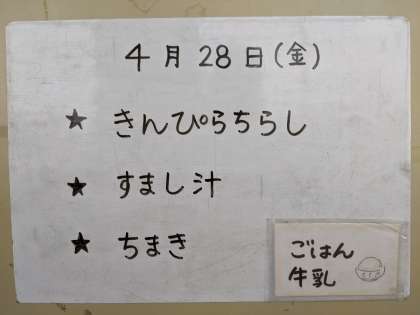 4月28日(金)
★ きんぴらちらし
★ すまし汁
★ ちまき
ごはん
牛乳